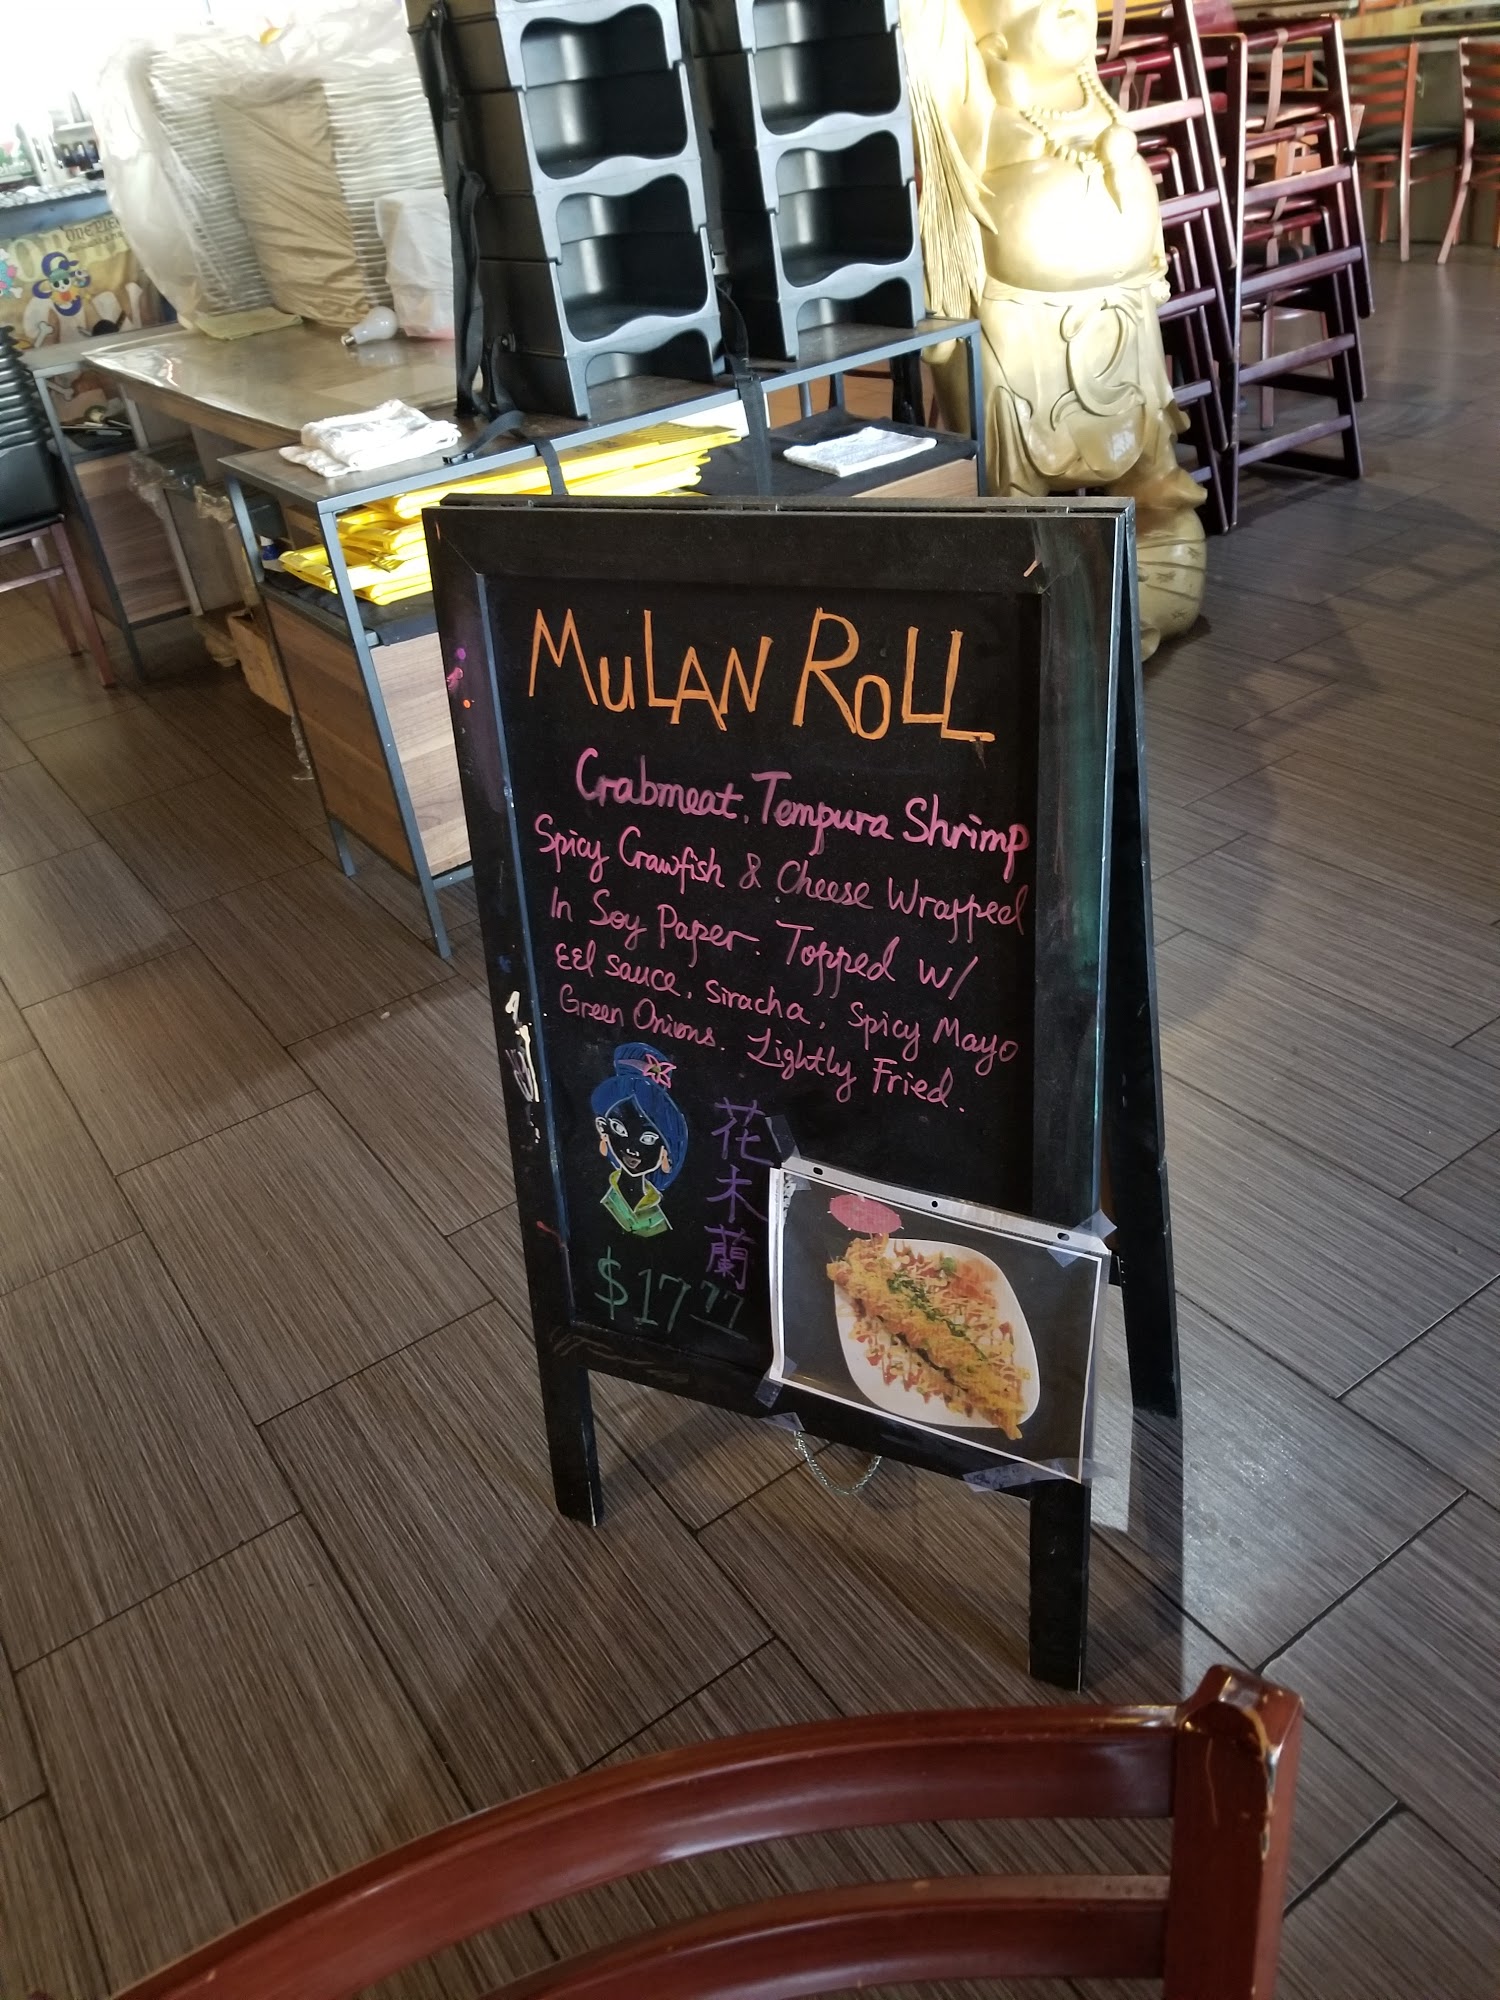 ONE PIECE
MuLAN RoLL
Crabmeat, Tempura Shrimp
Spicy Crawfish & Cheese Wrapped
In Soy Paper. Topped w/
EEl sauce, siracha, Spicy Mayo
Green Onions. Lightly Fried.
花木蘭
$17.77